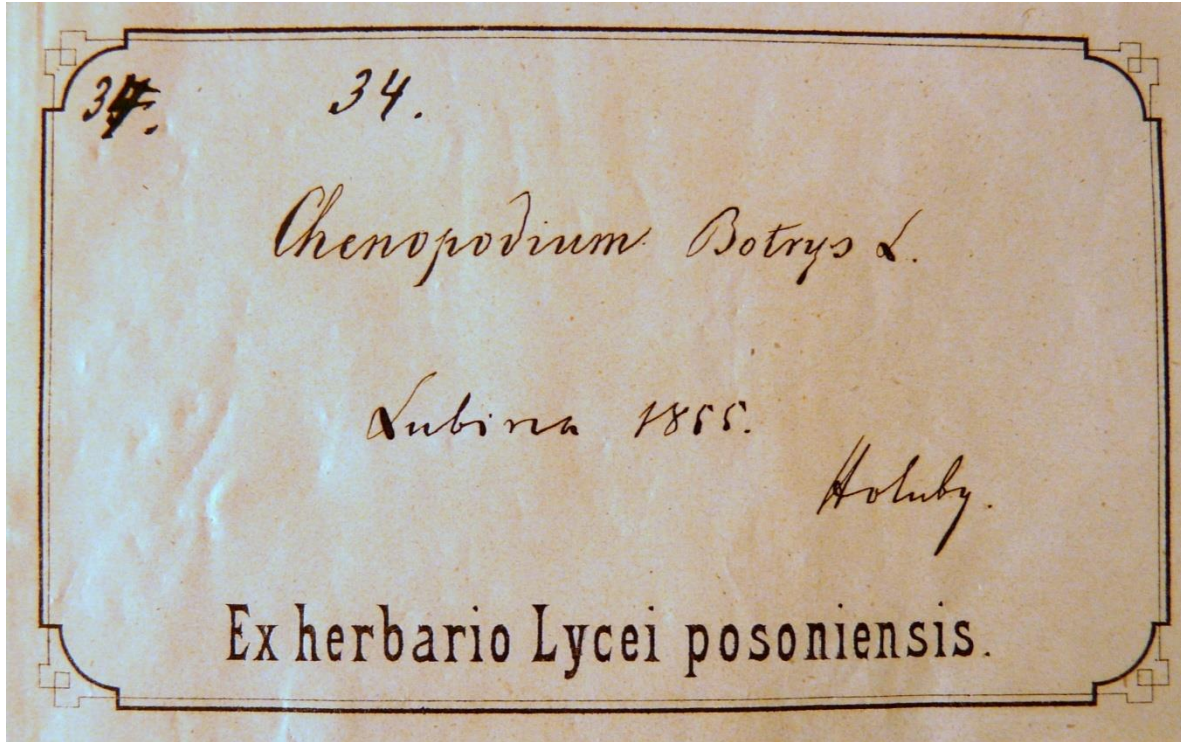 34. 34.
Chenopodium Botrys L.
Lubina 1855.
Holuby.
Ex herbario Lycei posoniensis.